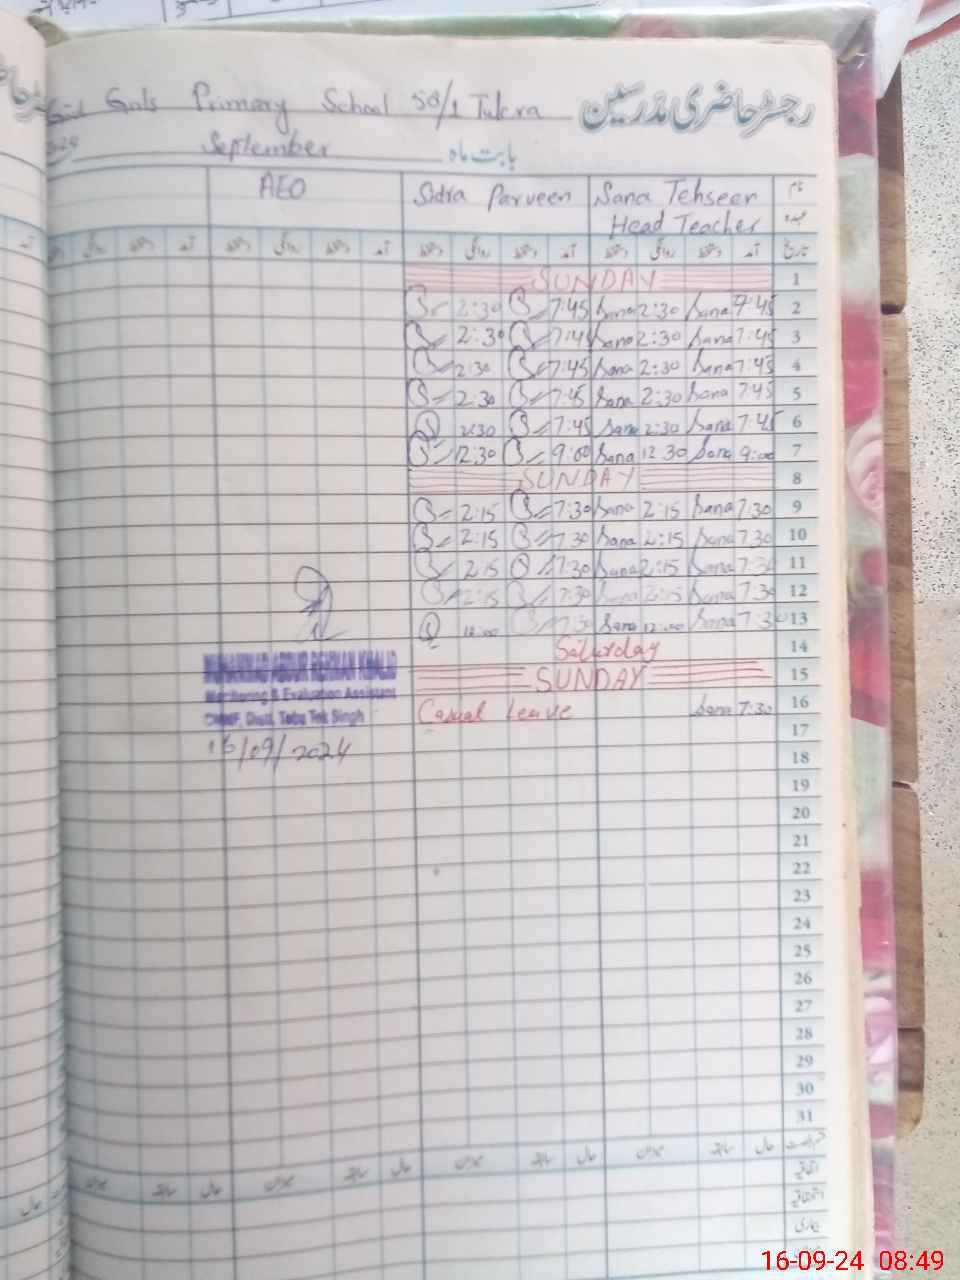 Girls Primary School 58/1 Tukra رجسٹر حاضری مدرسین
2024 September بابت ماہ
AEO Sidra Parveen Sana Tehseen نام
Head Teacher عہدہ
آمد دستخط روانگی دستخط آمد دستخط روانگی دستخط آمد دستخط روانگی دستخط تاریخ
SUNDAY 1
2:30 7:45 Sana 2:30 Sana 7:45 2
2:30 7:45 Sana 2:30 Sana 7:45 3
2:30 7:45 Sana 2:30 Sana 7:45 4
2:30 7:45 Sana 2:30 Sana 7:45 5
2:30 7:45 Sana 2:30 Sana 7:45 6
12:30 9:00 Sana 12:30 Sana 9:00 7
SUNDAY 8
2:15 7:30 Sana 2:15 Sana 7:30 9
2:15 7:30 Sana 2:15 Sana 7:30 10
2:15 7:30 Sana 2:15 Sana 7:30 11
2:15 7:30 Sana 2:15 Sana 7:30 12
12:00 7:30 Sana 12:00 Sana 7:30 13
Saturday 14
MUHAMMAD ABDUR REHMAN KHALID SUNDAY 15
Monitoring & Evaluation Assistant
Casual Leave Sana 7:30 16
Distt. Toba Tek Singh
17
16/09/2024 18
19
20
21
22
23
24
25
26
27
28
29
30
31
حال سابقہ میزان حال سابقہ میزان حال سابقہ میزان
اتفاقیہ
استحقاقیہ
بیماری
16-09-24 08:49